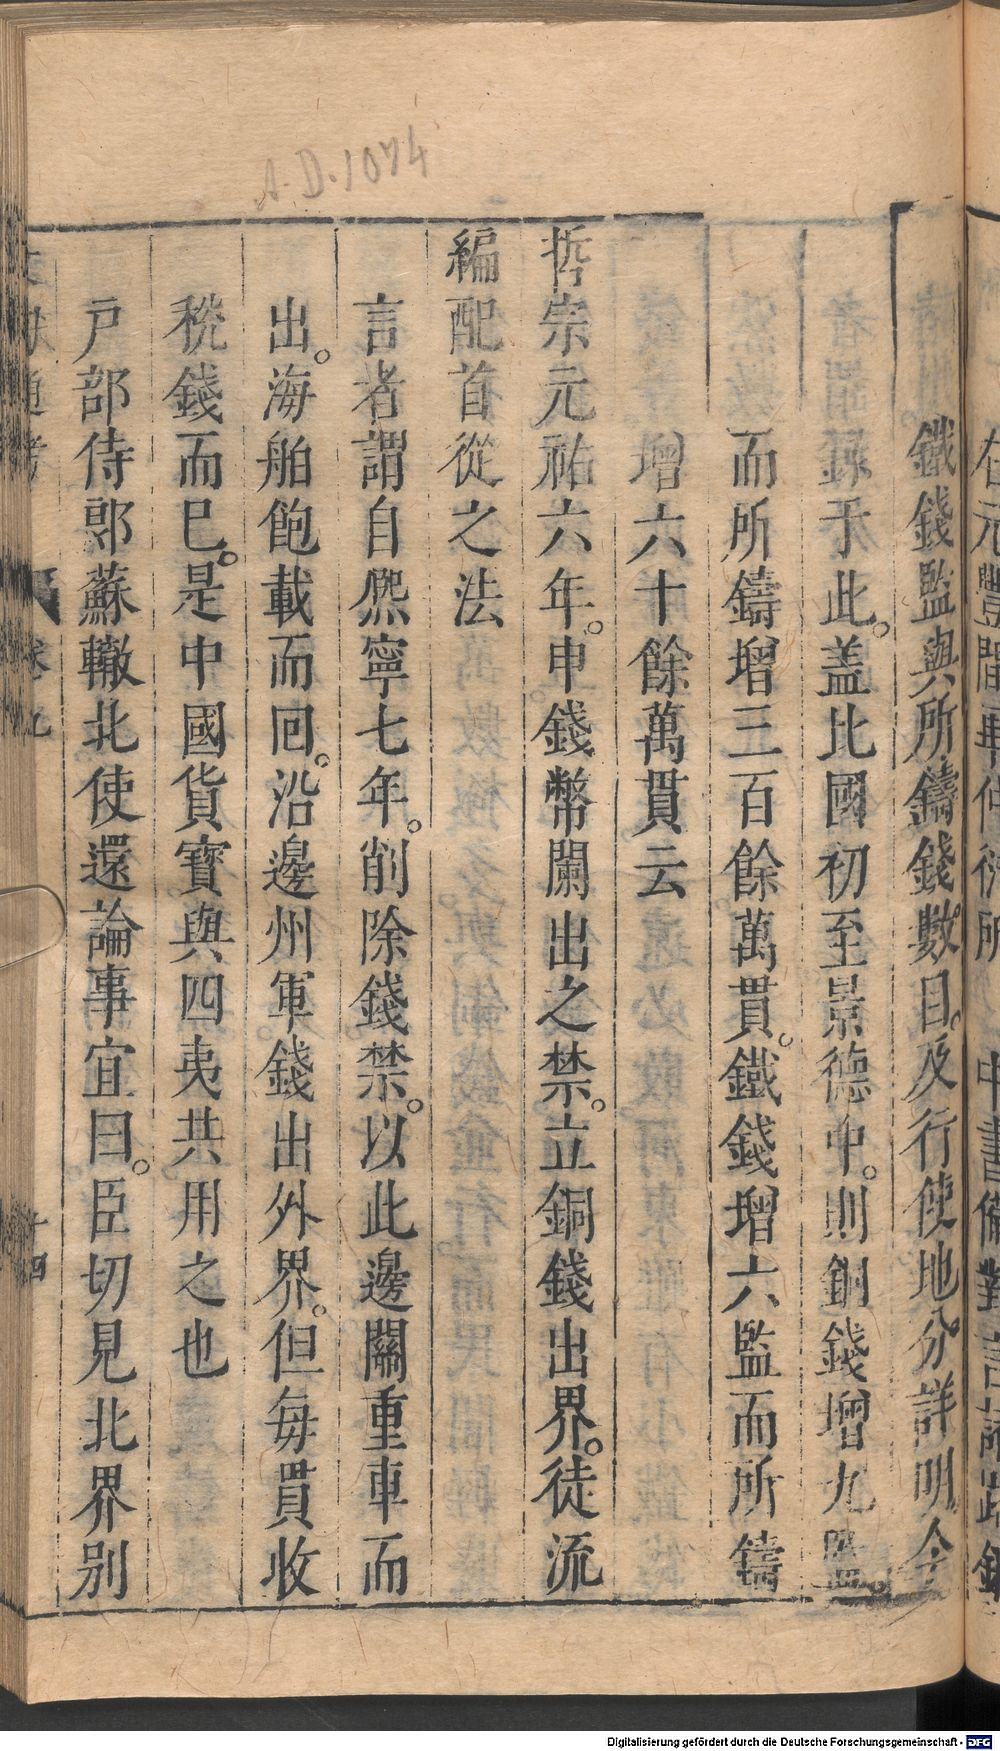 A.D.1074
鐵錢監與所鑄錢數目。及行使地分詳明。今
于此。盖比國初至景德中。則銅錢增九監。
而所鑄增三百餘萬貫。鐵錢增六監而所鑄
增六十餘萬貫云
哲宗元祐六年。申錢幣闌出之禁。立銅錢出界。徒流
編配首從之法
言者謂自熈寧七年。削除錢禁。以此邊關重車而
出。海舶飽載而回。沿邊州軍錢出外界。但每貫收
稅錢而已。是中國貨寶與四夷共用之也
戶部侍郎蘇轍北使還論事宜曰。臣切見北界别
卷九
十四
Digitalisierung gefördert durch die Deutsche Forschungsgemeinschaft - DFG